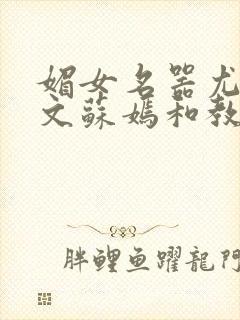 媚女名器尤
文蘇媽和教
胖鯉鱼躍龍門